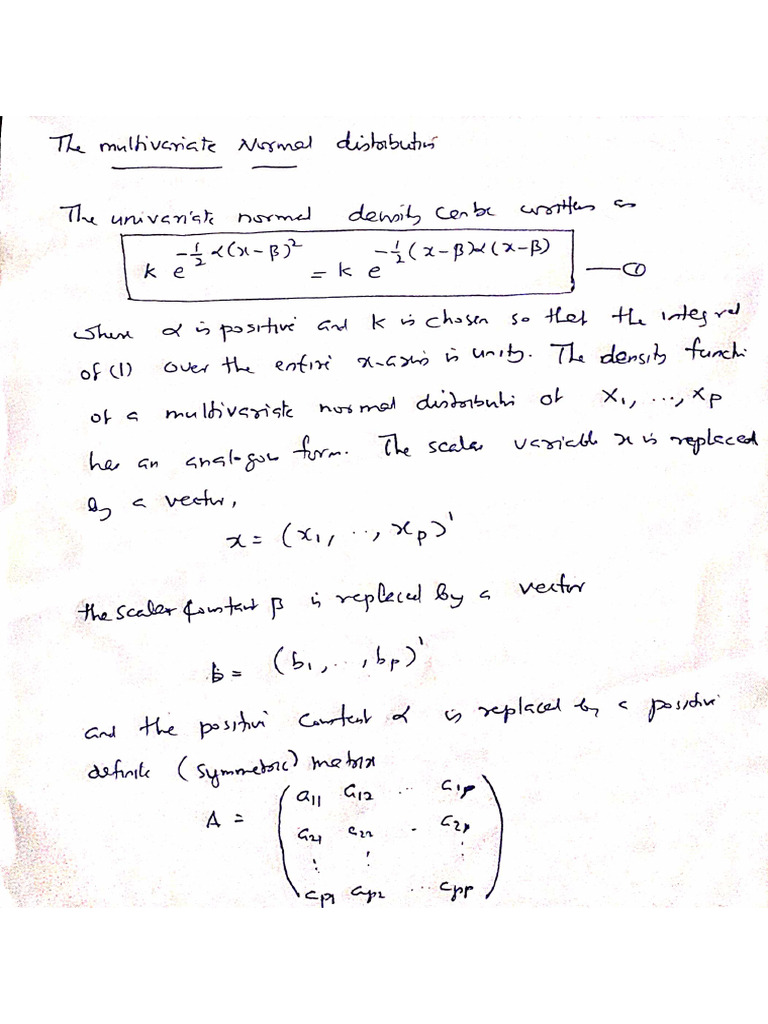 The multivariate Normal distribution
The univariate normal density can be written as
k e^{-\frac{1}{2} α(x-β)^2} = k e^{-\frac{1}{2}(x-β)α(x-β)} —①
where α is positive and k is chosen so that the integral
of (1) over the entire x-axis is unity. The density functi
of a multivariate normal distributi of X_1, ..., X_p
has an analogous form. The scalar variable x is replaced
by a vector,
x = (x_1, .., x_p)'
the scalar constant β is replaced by a vector
b = (b_1, ..., b_p)'
and the positive constant α is replaced by a positive
definite (symmetric) matrix
A = ( a_11 a_12 ... a_1p
a_21 a_22 . a_2p
⋮ ⋮ ⋮
a_p1 a_p2 ... a_pp )